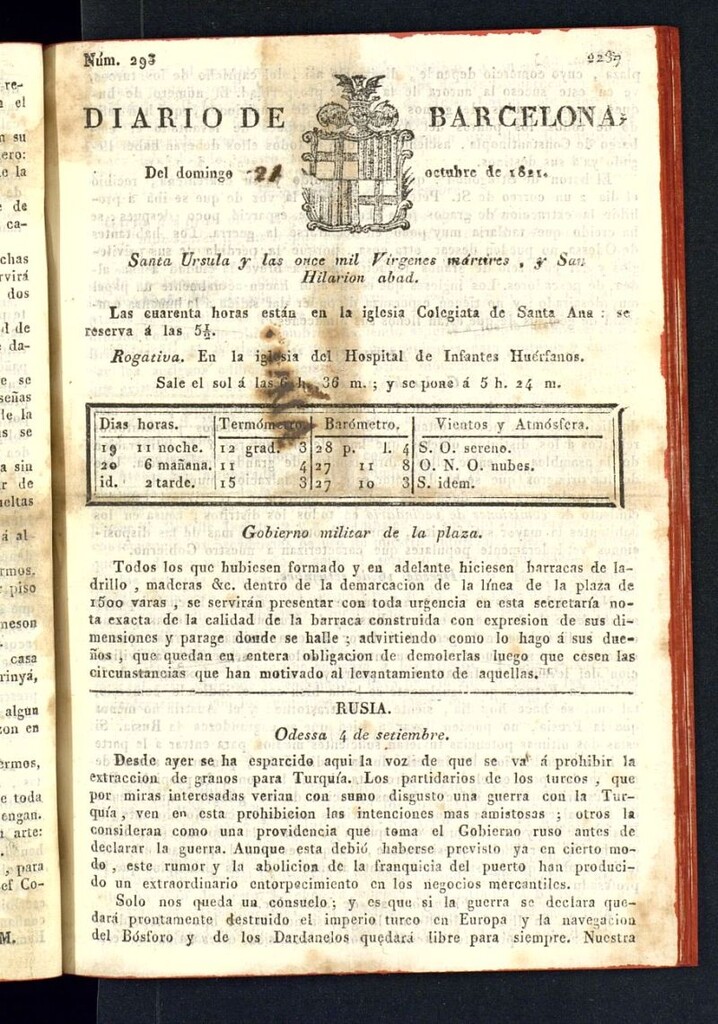 re-
el
n su
ero:
e la
de
ca-
chas
rvirá
dos
d de
da-
e se
señas
le la
s se
a sin
r de
ueltas
á al
rmos.
piso
neson
casa
rinyá,
algun
zon en
ermos,
e toda
engan.
arte:
, para
ef Co-
M.
Núm. 293
2237
DIARIO DE BARCELONA,
Del domingo 21 octubre de 1821.
Santa Ursula y las once mil Vírgenes mártires , y San
Hilarion abad.
Las cuarenta horas están en la iglesia Colegiata de Santa Ana : se
reserva á las 5½.
Rogativa. En la iglesia del Hospital de Infantes Huérfanos.
Sale el sol á las 6 h. 36 m. ; y se pone á 5 h. 24 m.
Dias horas. Termómetro. Barómetro. Vientos y Atmósfera.
19 11 noche. 12 grad. 3 28 p. l. 4 S. O. sereno.
20 6 mañana. 11 4 27 11 8 O. N. O. nubes.
id. 2 tarde. 15 3 27 10 3 S. idem.
Gobierno militar de la plaza.
Todos los que hubiesen formado y en adelante hiciesen barracas de la-
drillo , maderas &c. dentro de la demarcacion de la línea de la plaza de
1500 varas , se servirán presentar con toda urgencia en esta secretaría no-
ta exacta de la calidad de la barraca construida con expresion de sus di-
mensiones y parage donde se halle ; advirtiendo como lo hago á sus due-
ños , que quedan en entera obligacion de demolerlas luego que cesen las
circunstancias que han motivado al levantamiento de aquellas.
RUSIA.
Odessa 4 de setiembre.
Desde ayer se ha esparcido aqui la voz de que se va á prohibir la
extraccion de granos para Turquía. Los partidarios de los turcos , que
por miras interesadas verian con sumo disgusto una guerra con la Tur-
quía , ven en esta prohibicion las intenciones mas amistosas ; otros la
consideran como una providencia que toma el Gobierno ruso antes de
declarar la guerra. Aunque esta debió haberse previsto ya en cierto mo-
do , este rumor y la abolicion de la franquicia del puerto han produci-
do un extraordinario entorpecimiento en los negocios mercantiles.
Solo nos queda un consuelo ; y es que si la guerra se declara que-
dará prontamente destruido el imperio turco en Europa y la navegacion
del Bósforo y de los Dardanelos quedará libre para siempre. Nuestra